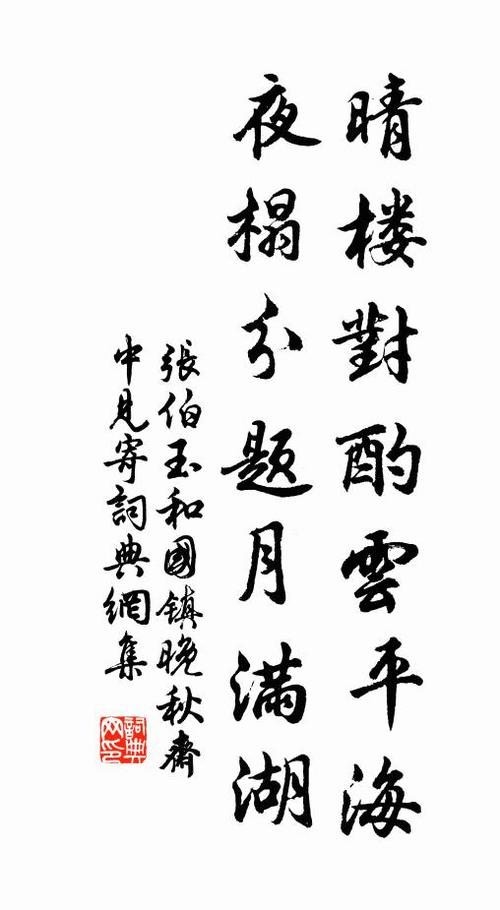 晴楼對酌雲平海
夜榻分题月满湖
張伯玉和國镇晚秋齋
中見寄詞典網集
詞典
网印